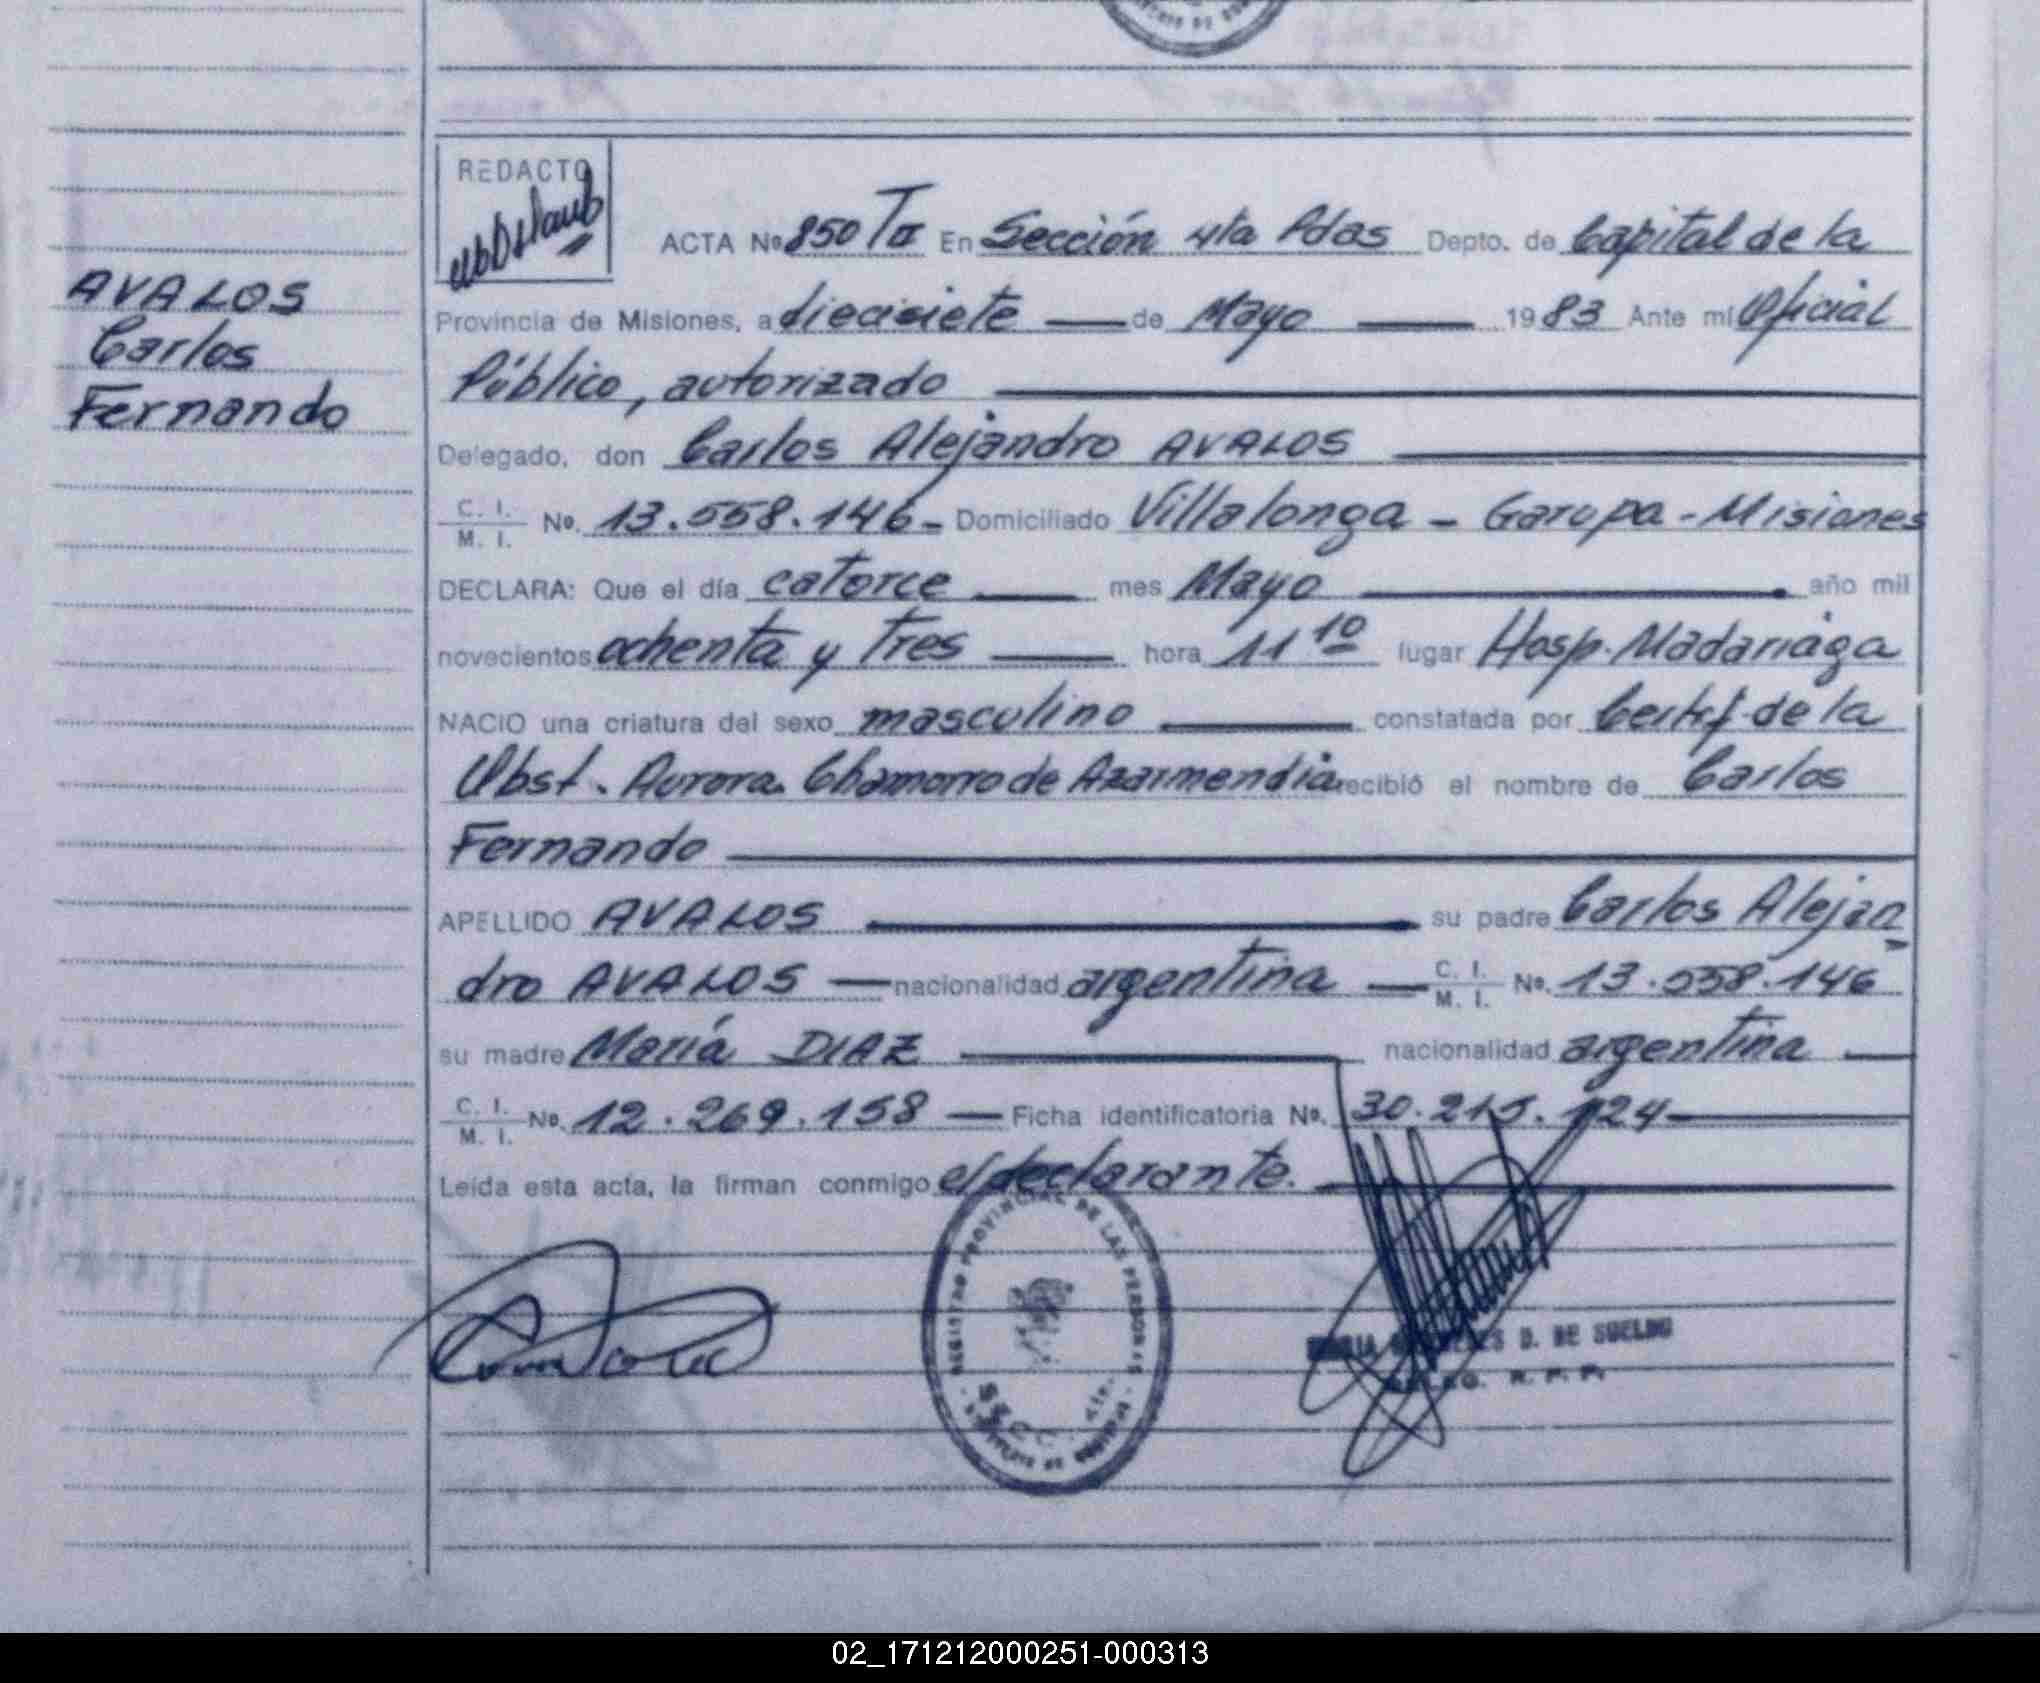 REDACTO
ACTA No 850 TII En Sección 4ta Pdas Depto. de Capital de la
AVALOS
Carlos
Fernando
Provincia de Misiones, a diecisiete — de Mayo — 1983 Ante mí Oficial
Público, autorizado —
Delegado, don Carlos Alejandro AVALOS —
C. I. / M. I. No. 13.558.146- Domiciliado Villalonga - Garupa - Misiones
DECLARA: Que el día catorce — mes Mayo — año mil
novecientos ochenta y tres — hora 11 10 lugar Hosp. Madariaga
NACIO una criatura del sexo masculino — constatada por Certif. de la
Obst. Aurora Chamorro de Azarmendia recibió el nombre de Carlos
Fernando —
APELLIDO AVALOS — su padre Carlos Alejan
dro AVALOS — nacionalidad argentina — C. I. / M. I. No. 13.558.146
su madre María DIAZ — nacionalidad argentina —
C. I. / M. I. No. 12.269.158 — Ficha identificatoria No. 30.215.124 —
Leída esta acta, la firman conmigo el declarante. —
REGISTRO PROVINCIAL DE LAS PERSONAS
D. DE SUELDO
R. P. P.
02_171212000251-000313